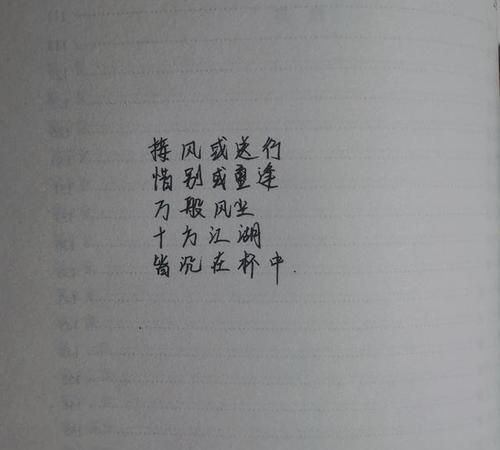 接风或送行
惜别或重逢
万般风尘
十方江湖
皆沉在杯中.